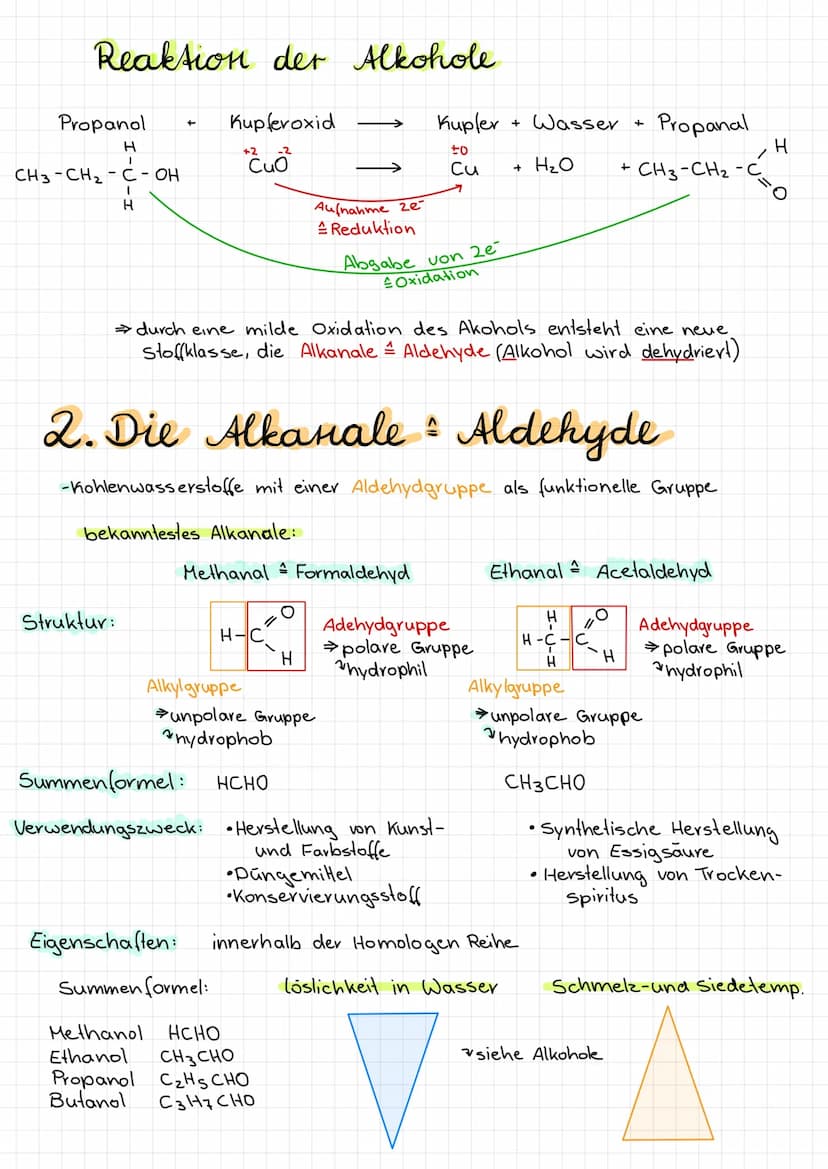 Reaktion der Alkohole
Propanol + Kupferoxid → Kupfer + Wasser + Propanal
H
+2 -2 ±0 H
CH3-CH2-C-OH CuO → Cu + H2O + CH3-CH2-C
H O
Aufnahme 2e-
≙ Reduktion
Abgabe von 2e-
≙ Oxidation
⇒ durch eine milde Oxidation des Akohols entsteht eine neue
Stoffklasse, die Alkanale ≙ Aldehyde (Alkohol wird dehydriert)
2. Die Alkanale ≙ Aldehyde
-Kohlenwasserstoffe mit einer Aldehydgruppe als funktionelle Gruppe
bekanntestes Alkanale:
Methanal ≙ Formaldehyd Ethanal ≙ Acetaldehyd
Struktur:
H-C O H
Adehydgruppe
⇒ polare Gruppe
↴hydrophil
H
H-C-C O H
H
Adehydgruppe
⇒ polare Gruppe
↴hydrophil
Alkylgruppe
⇒ unpolare Gruppe
↴hydrophob
Alkylgruppe
⇒ unpolare Gruppe
↴hydrophob
Summenformel: HCHO CH3CHO
Verwendungszweck:
• Herstellung von Kunst-
und Farbstoffe
• Düngemittel
• Konservierungsstoff
• Synthetische Herstellung
von Essigsäure
• Herstellung von Trocken-
spiritus
Eigenschaften: innerhalb der Homologen Reihe
Summenformel: löslichkeit in Wasser Schmelz-und Siedetemp.
Methanol HCHO
Ethanol CH3CHO
Propanol C2H5CHO
Butanol C3H7CHO
↴siehe Alkohole